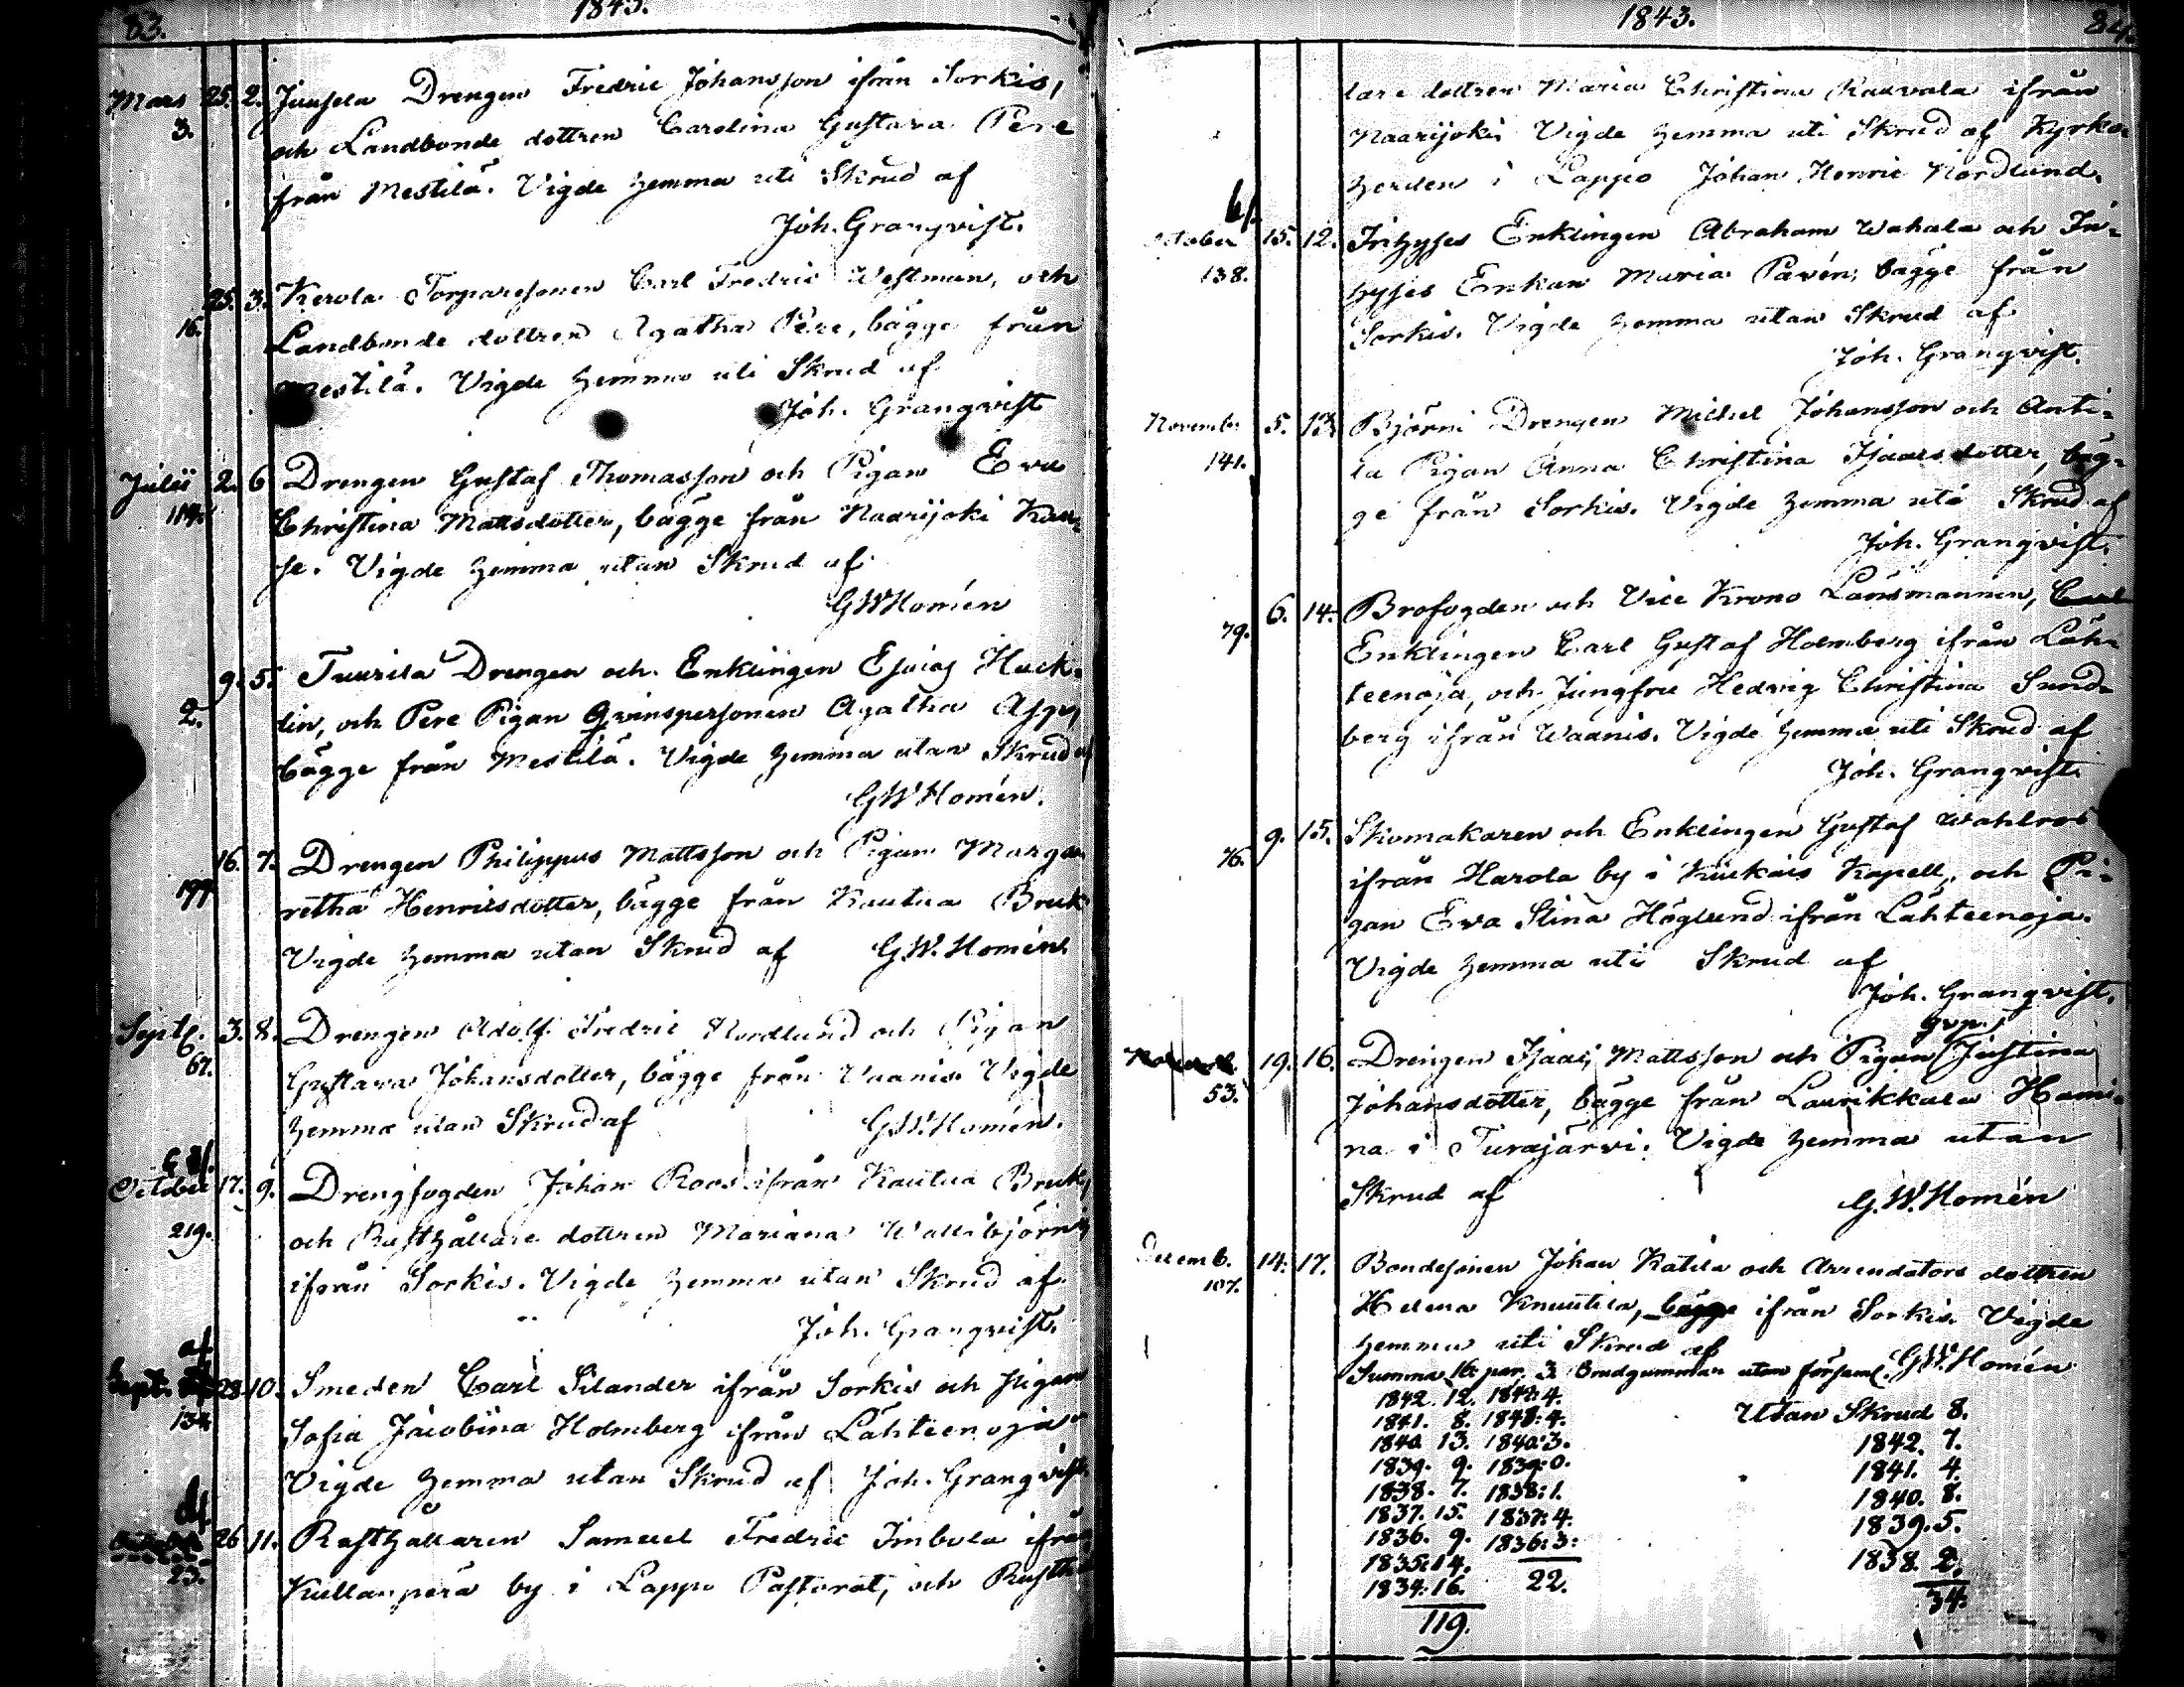 83.
1843.
Mars 25. 2. Juusela Drengen Fredric Johansson ifrån Sorkis,
3. och Landbonde dottren Carolina Gustava Pere
från Mestilä. Vigde hemma uti Skrud af
Joh. Granqvist.
25. 3. Kerola Torparesonen Carl Fredric Westman, och
16. Landbonde dottren Agatha Pere, bägge från
Mestilä. Vigde hemma uti Skrud af
Joh. Granqvist
Julii 2. 6 Drengen Gustaf Thomasson och Pigan Eva
114. Christina Mattsdotter, bägge från Naarijoki Kau-
se. Vigde hemma utan Skrud af
GWHomén
9. 5. Tuurila Drengen och Enklingen Esaias Hack-
2. lin, och Pere Pigan Qvinspersonen Agatha
bägge från Mestilä. Vigde hemma utan Skrud af
GWHomén.
16. 7. Drengen Philippus Mattsson och Pigan Marga-
199. retha Henricsdotter, bägge från Kautua Bruk
Vigde hemma utan Skrud af GW.Homén.
Septb. 3. 8. Drengen Adolf Fredric Nordlund och Pigan
67. Gustava Johansdotter, bägge från Vaanis. Vigde
hemma utan Skrud af G.W.Homén.
October 17. 9. Drengfogden Johan Roos ifrån Kautua Bruk,
219. och Rusthållare dottren Mariana Wallibjörn
ifrån Sorkis. Vigde hemma utan Skrud af
Joh. Granqvist.
af
Sept. 28. 10. Smeden Carl Silander ifrån Sorkis och pigan
134. Sofia Jacobina Holmberg ifrån Lähteenoja
Vigde hemma utan Skrud af Joh. Granqvist
26 11. Rusthållaren Samuel Fredric Imbola ifrån
23. Kullanperä by i Lappo Pastorat, och Rusthå
1843.
84.
lare dottren Maria Christina Kauvala ifrån
Naarijoki. Vigde hemma uti Skrud af Kyrko-
herden i Lappo Johan Henric Nordlund.
October 15. 12. Inhyses Enklingen Abraham Wahala och In-
138. hyses Enkan Maria Pavén, bägge från
Sorkis. Vigde hemma utan Skrud af
Joh. Granqvist.
November 5. 13. Björni Drengen Michel Johansson och Anti-
141. la Pigan Anna Christina Isaacsdotter, bäg-
ge från Sorkis. Vigde hemma uti Skrud af
Joh. Granqvist.
6. 14. Brofogden och Vice Krono Länsmannen, Carl
79. Enklingen Carl Gustaf Holmberg ifrån Läh-
teenoja, och Jungfru Hedvig Christina Sund-
berg ifrån Waanis. Vigde hemma uti Skrud af
Joh. Granqvist.
9. 15. Skomakaren och Enklingen Gustaf Wahlros
76. ifrån Harola by i Kiukais Kapell, och Pi-
gan Eva Stina Höglund ifrån Lähteenoja.
Vigde hemma uti Skrud af
Joh. Granqvist.
qvp.
19. 16. Drengen Isaac Mattsson och Pigan Justina
53. Johansdotter, bägge från Laurikkala Hami-
na i Turajärvi. Vigde hemma utan
Skrud af G.W.Homén
Decemb. 14. 17. Bondesonen Johan Katila och Arrendators dottren
107. Helena Knuutila, bägge ifrån Sorkis. Vigde
hemma uti Skrud af GW.Homén
Summa 16 par. 3. Brudgummar utom församl.
1842. 12. 1842: 4. Utan Skrud 8.
1841. 8. 1841: 4. 1842. 7.
1840 13. 1840: 3. 1841. 4.
1839. 9. 1839: 0. 1840. 8.
1838. 7. 1838: 1. 1839. 5.
1837. 15. 1837: 4. 1838. 2.
1836. 9. 1836: 3: 34.
1835: 14. 22.
1834: 16.
119.